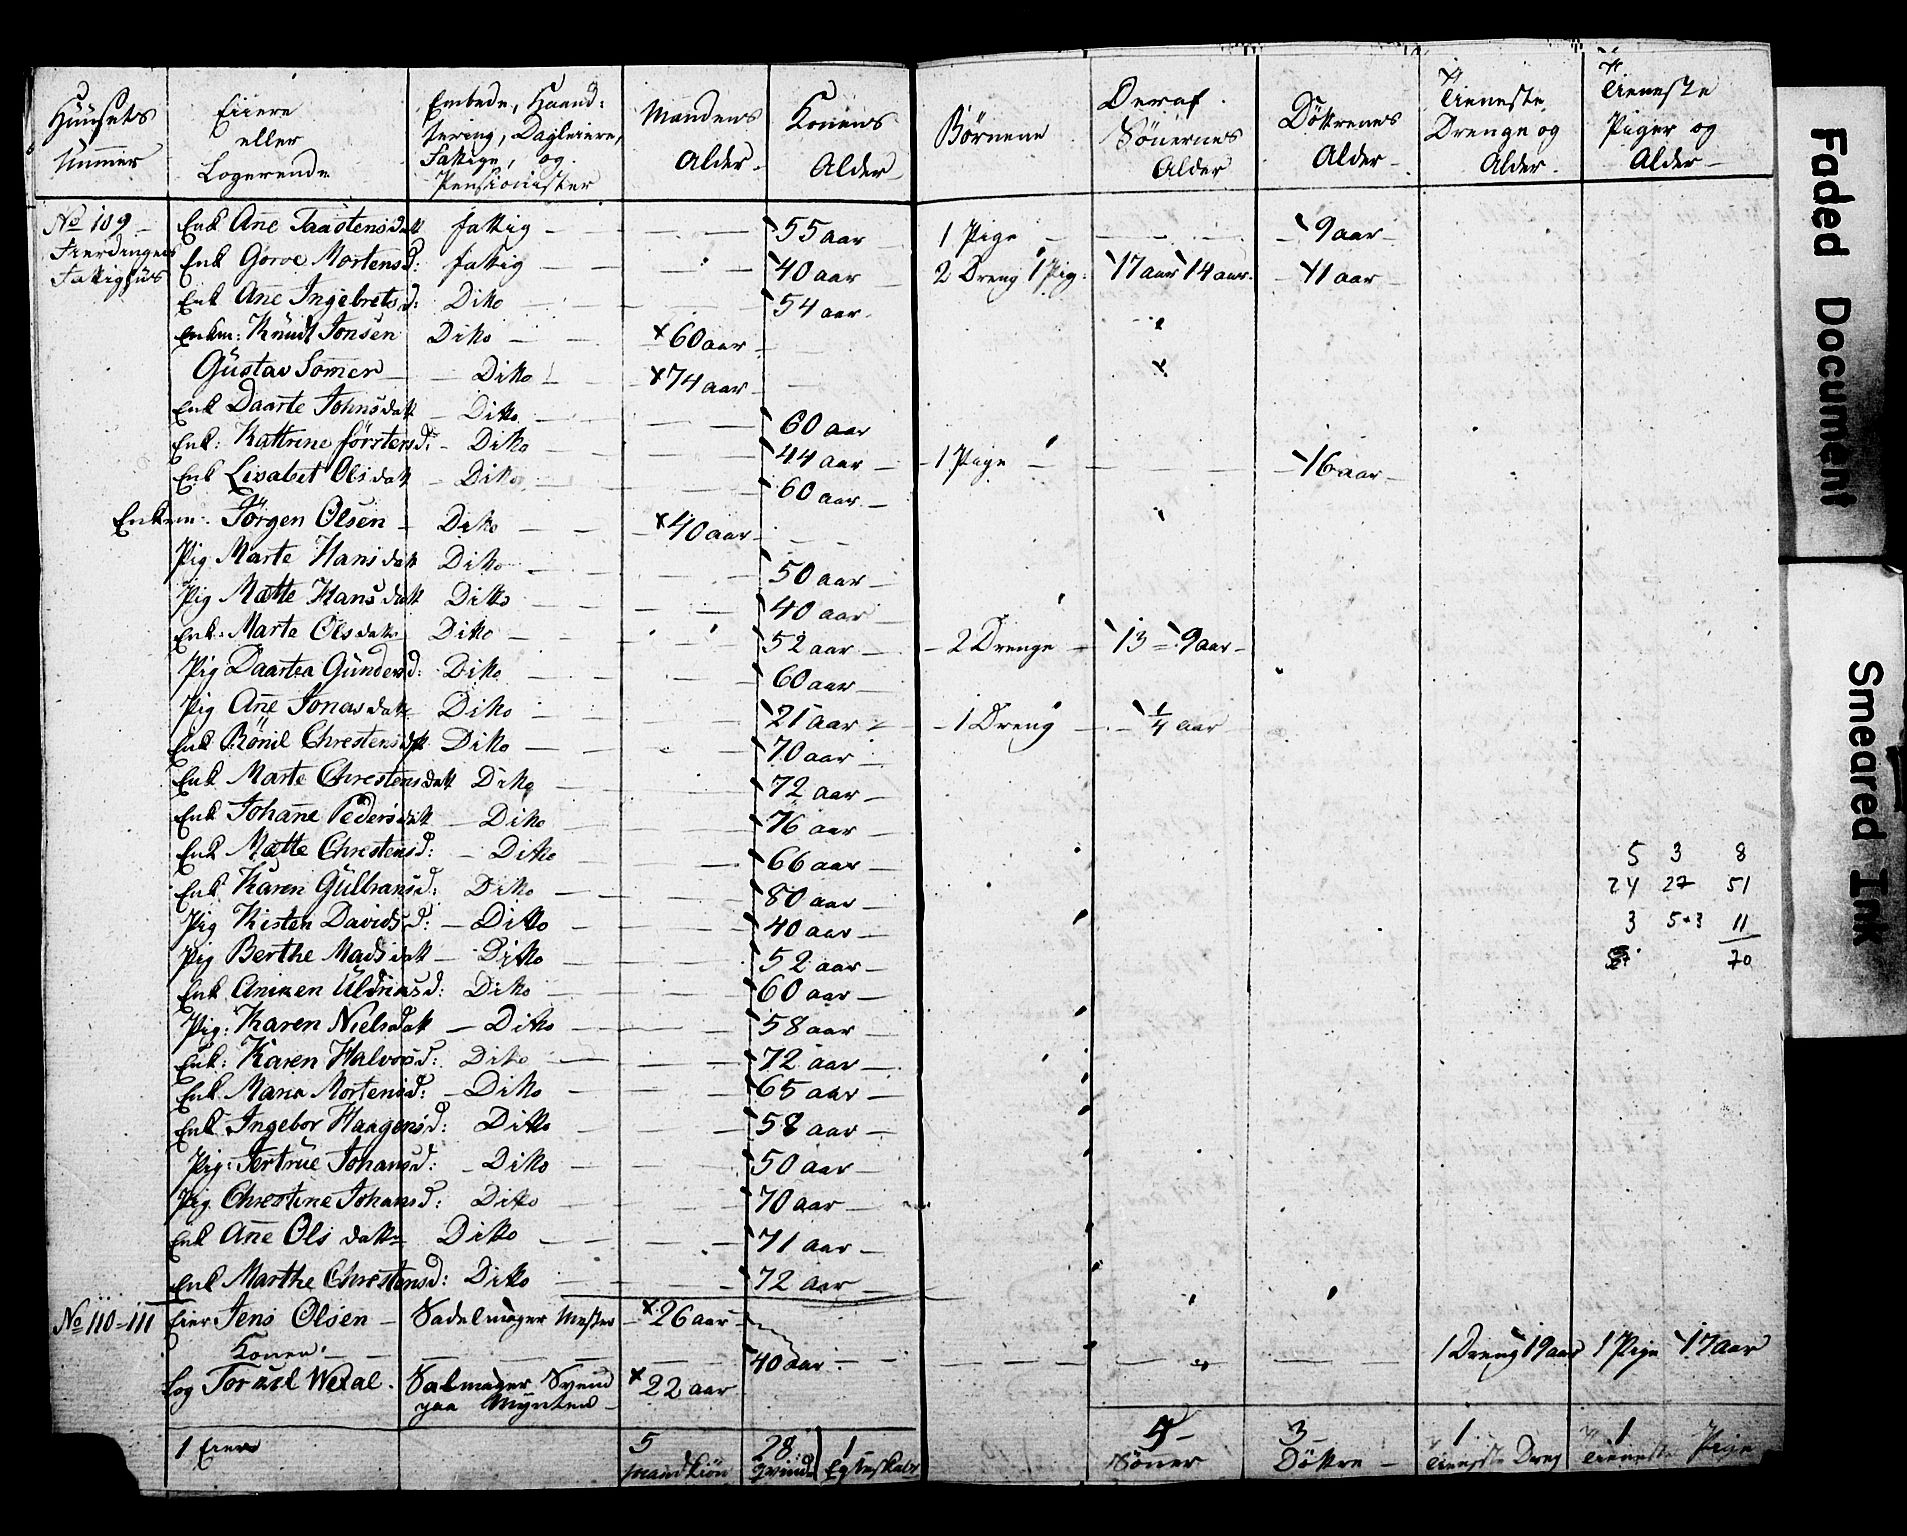 Huusets Nummer | Eiere eller Logerende | Embede, Haandtering, Dagleiere, Fattige, og Pensionister | Mandens Alder | Konens Alder | Börnene | Deraf Sönernes Alder | Döttrenes Alder | Tieneste Drenge og Alder | Tieneste Piger og Alder
No 109 Fierdingens Fattighus | Enk Ane Taastensdatt | fattig | 55 aar | 1 Pige | 9 aar
Enk Goroe Mortensd: | fattig | 40 aar | 2 Dreng 1 Pig: | 17 aar 14 aar. | 11 aar
Enk Ane Ingebretsd: | Ditto | 54 aar
Enkm: Knudt Jonsen | Ditto | 60 aar
Gustav Somer | Ditto | 74 aar
Enk Daarte Johnsdatt | Ditto | 60 aar
Enk: Kattrine Förstersd: | Ditto | 44 aar | 1 Pige | 16 aar
Enk Lisabet Olsdatt | Ditto | 60 aar
Enkem: Jörgen Olsen | Ditto | 40 aar
Pig Marte Hansdatt | Ditto | 50 aar
Pig Mætte Hansdatt | Ditto | 40 aar
Enk: Marta Olsdatt | Ditto | 52 aar | 2 Drenge | 13 = 9 aar
Pig Daartea Gundersd: | Ditto | 60 aar
Pig Ane Jonasdatt | Ditto | 21 aar | 1 Dreng | 1/4 aar
Enk Rönil Chrestensdatt | Ditto | 70 aar
Enk Marte Chrestensdatt | Ditto | 72 aar
Enk Johane Pedersdatt | Ditto | 76 aar
Enk Mætte Chrestensd: | Ditto | 66 aar
Enk Karen Gulbransd: | Ditto | 80 aar
Pig Kisten Davidsd: | Ditto | 40 aar
Pig Berthe Madsdatt | Ditto | 52 aar
Enk Aniken Uldriksd: | Ditto | 60 aar
Pig: Karen Nielsdatt | Ditto | 58 aar
Enk: Karen Halvorsd: | Ditto | 72 aar
Enk Maria Mortensd: | Ditto | 65 aar
Enk Ingebor Haagensd: | Ditto | 58 aar
Pig: Jertrue Johansd: | Ditto | 50 aar
Pig Chrestine Johansd: | Ditto | 70 aar
Enk Ane Olsdatt | Ditto | 71 aar
Enk Marthe Chrestensd: | Ditto | 72 aar
No 110=111 | Eier Jens Olsen | Sadelmager Mester | 26 aar
Konen: | 40 aar | 1 Dreng 19 aar | 1 Pige 17 aar
Log Wedal. | Salmager Svend paa Mynten | 22 aar
1 Eiere | 5 Mandkiön | 28 | 1 Egteskab | 5 Sönner | 3 Döttre | 1 Tieneste Dreng | 1 Tieneste Pige
5 3 8
24 27 51
3 5+3 11
70
Faded Document
Smeared Ink